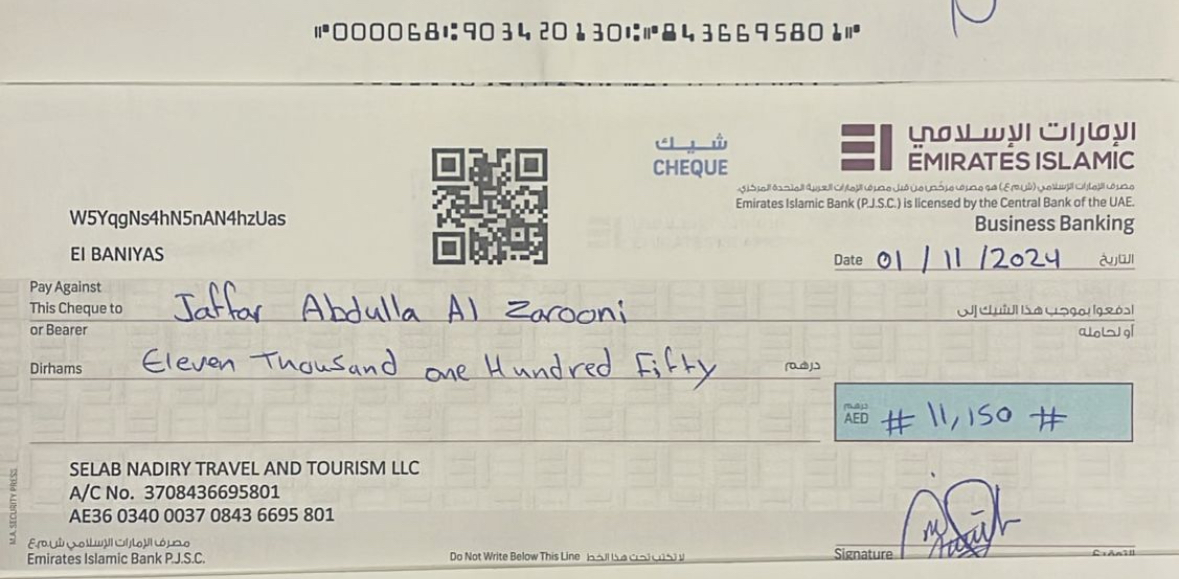 ⑈000068⑆903420130⑆⑈8436695801⑈
شيك
CHEQUE
الإمارات الإسلامي
EMIRATES ISLAMIC
مصرف الإمارات الإسلامي (ش.م.ع) هو مصرف مرخّص من قبل مصرف الإمارات العربية المتحدة المركزي.
Emirates Islamic Bank (P.J.S.C.) is licensed by the Central Bank of the UAE.
Business Banking
W5YqgNs4hN5nAN4hzUas
EI BANIYAS
Date 01 / 11 / 2024 التاريخ
Pay Against
This Cheque to Jaffar Abdulla Al Zarooni ادفعوا بموجب هذا الشيك إلى
or Bearer أو لحامله
Dirhams Eleven Thousand one Hundred Fifty درهم
درهم
AED # 11,150 #
SELAB NADIRY TRAVEL AND TOURISM LLC
A/C No. 3708436695801
AE36 0340 0037 0843 6695 801
مصرف الإمارات الإسلامي ش.م.ع
Emirates Islamic Bank P.J.S.C.
Do Not Write Below This Line لا تكتب تحت هذا الخط
Signature التوقيع
M.A. SECURITY PRESS